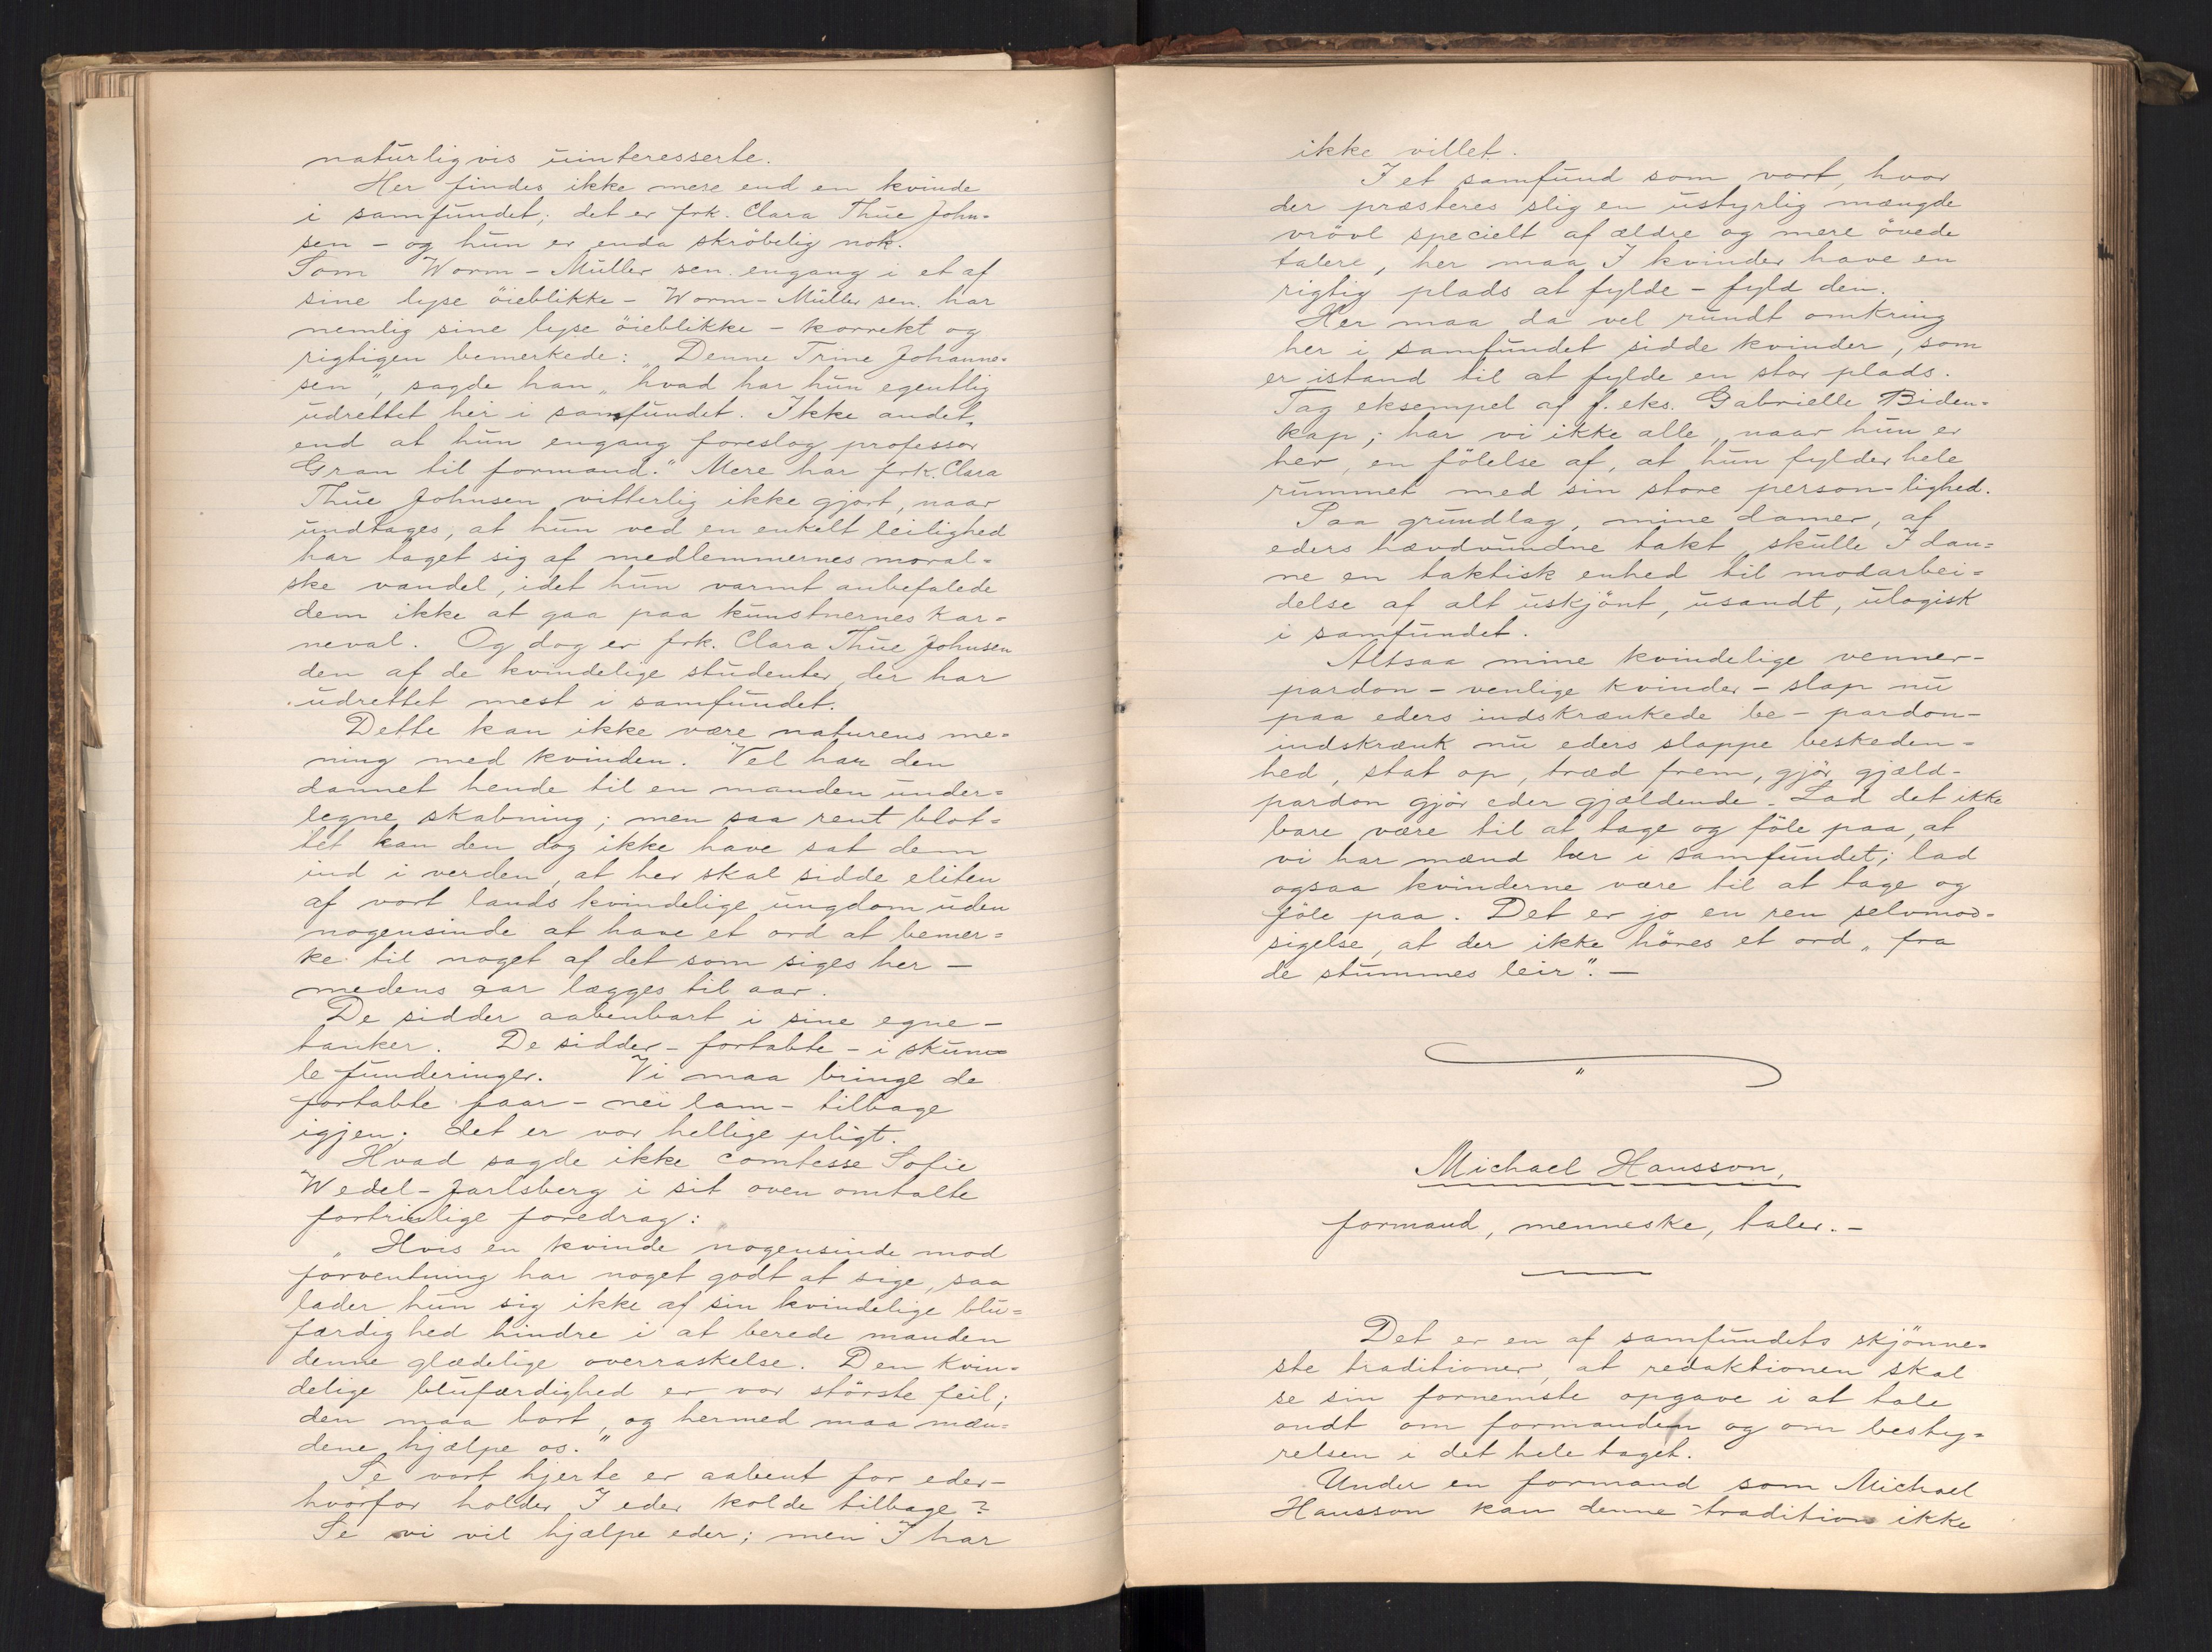 naturligvis uinteresserte.
Her findes ikke mere end en kvinde
i samfundet; det er frk. Clara Thue John-
sen - og hun er enda skröbelig nok.
Som Worm-Müller sen. engang i et af
sine lyse öieblikke - Worm-Müller sen. har
nemlig sine lyse öieblikke - korrekt og
rigtigen bemerkede: „Denne Trine Johanne-
sen", sagde han „hvad har hun egentlig
udrettet her i samfundet. Ikke andet,
end at hun engang foreslog professor
Gran til formand." Mere har frk. Clara
Thue Johnsen vitterlig ikke gjort, naar
undtages, at hun ved en enkelt leilighed
har taget sig af medlemmernes moral-
ske vandel, idet hun varmt anbefalede
dem ikke at gaa paa kunstnernes kar-
neval. Og dog er frk. Clara Thue Johnsen
den af de kvindelige studenter, der har
udrettet mest i samfundet.
Dette kan ikke være naturens me-
ning med kvinden. Vel har den
dannet hende til en manden under-
legne skabning; men saa rent blot-
tet kan den dog ikke have sat dem
ind i verden, at her skal sidde eliten
af vort lands kvindelige ungdom uden
nogensinde at have et ord at bemer-
ke til noget af det som siges her -
medens aar lægges til aar.
De sidder aabenbart i sine egne -
tanker. De sidder - fortabte - i skum-
le funderinger. Vi maa bringe de
fortabte faar - nei lam - tilbage
igjen; det er vor hellige pligt.
Hvad sagde ikke comtesse Sofie
Wedel-Jarlsberg i sit oven omtalte
fortrinlige foredrag:
„Hvis en kvinde nogensinde mod
forventning har noget godt at sige, saa
lader hun sig ikke af sin kvindelige blu-
færdighed hindre i at berede manden
denne glædelige overraskelse. Den kvin-
delige blufærdighed er vor störste feil;
den maa bort, og hermed maa mæn-
dene hjælpe os."
Se vort hjerte er aabent for eder -
hvorfor holder I eder kolde tilbage?
Se vi vil hjælpe eder; men I har
ikke villet.
I et samfund som vort, hvor
der præsteres slig en ustyrlig mængde
vrövl specielt af ældre og mere övede
talere, her maa I kvinder have en
rigtig plads at fylde - fyld den.
Her maa da vel rundt omkring
her i samfundet sidde kvinder, som
er istand til at fylde en stor plads.
Tag eksempel af f. eks. Gabrielle Biden-
kap; har vi ikke alle, naar hun er
her, en fölelse af, at hun fylder hele
rummet med sin store person-lighed.
Paa grundlag, mine damer, af
eders hævdvundne takt, skulle I dan-
ne en taktisk enhed til modarbei-
delse af alt uskjönt, usandt, ulogisk
i samfundet.
Altsaa mine kvindelige venner -
pardon - venlige kvinder - slap nu
paa eders indskrænkede be - pardon -
indskrænk nu eders slappe beskeden-
hed, stat op, træd frem, gjör gjæld-
pardon gjör eder gjældende. Lad det ikke
bare være til at tage og föle paa, at
vi har mænd her i samfundet; lad
ogsaa kvinderne være til at tage og
föle paa. Det er jo en ren selvmod-
sigelse, at der ikke höres et ord „fra
de stummes leir". -
Michael Hansson,
formand, menneske, taler. -
Det er en af samfundets skjönne-
ste traditioner, at redaktionen skal
se sin fornemste opgave i at tale
ondt om formanden og om besty-
relsen i det hele taget.
Under en formand som Michael
Hansson kan denne tradition ikke